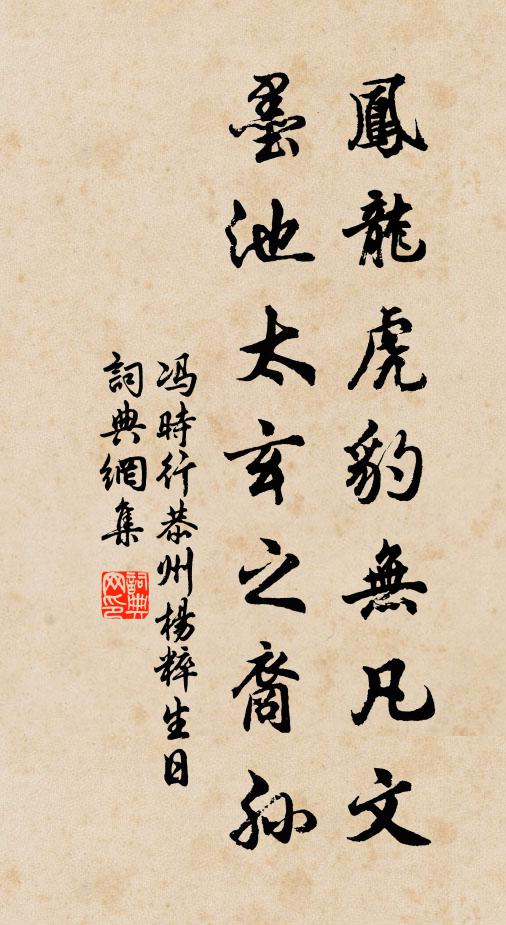 鳳龍虎豹無凡文
墨池太玄之裔孫
冯時行恭州楊粹生日
詞典網集
詞典网印